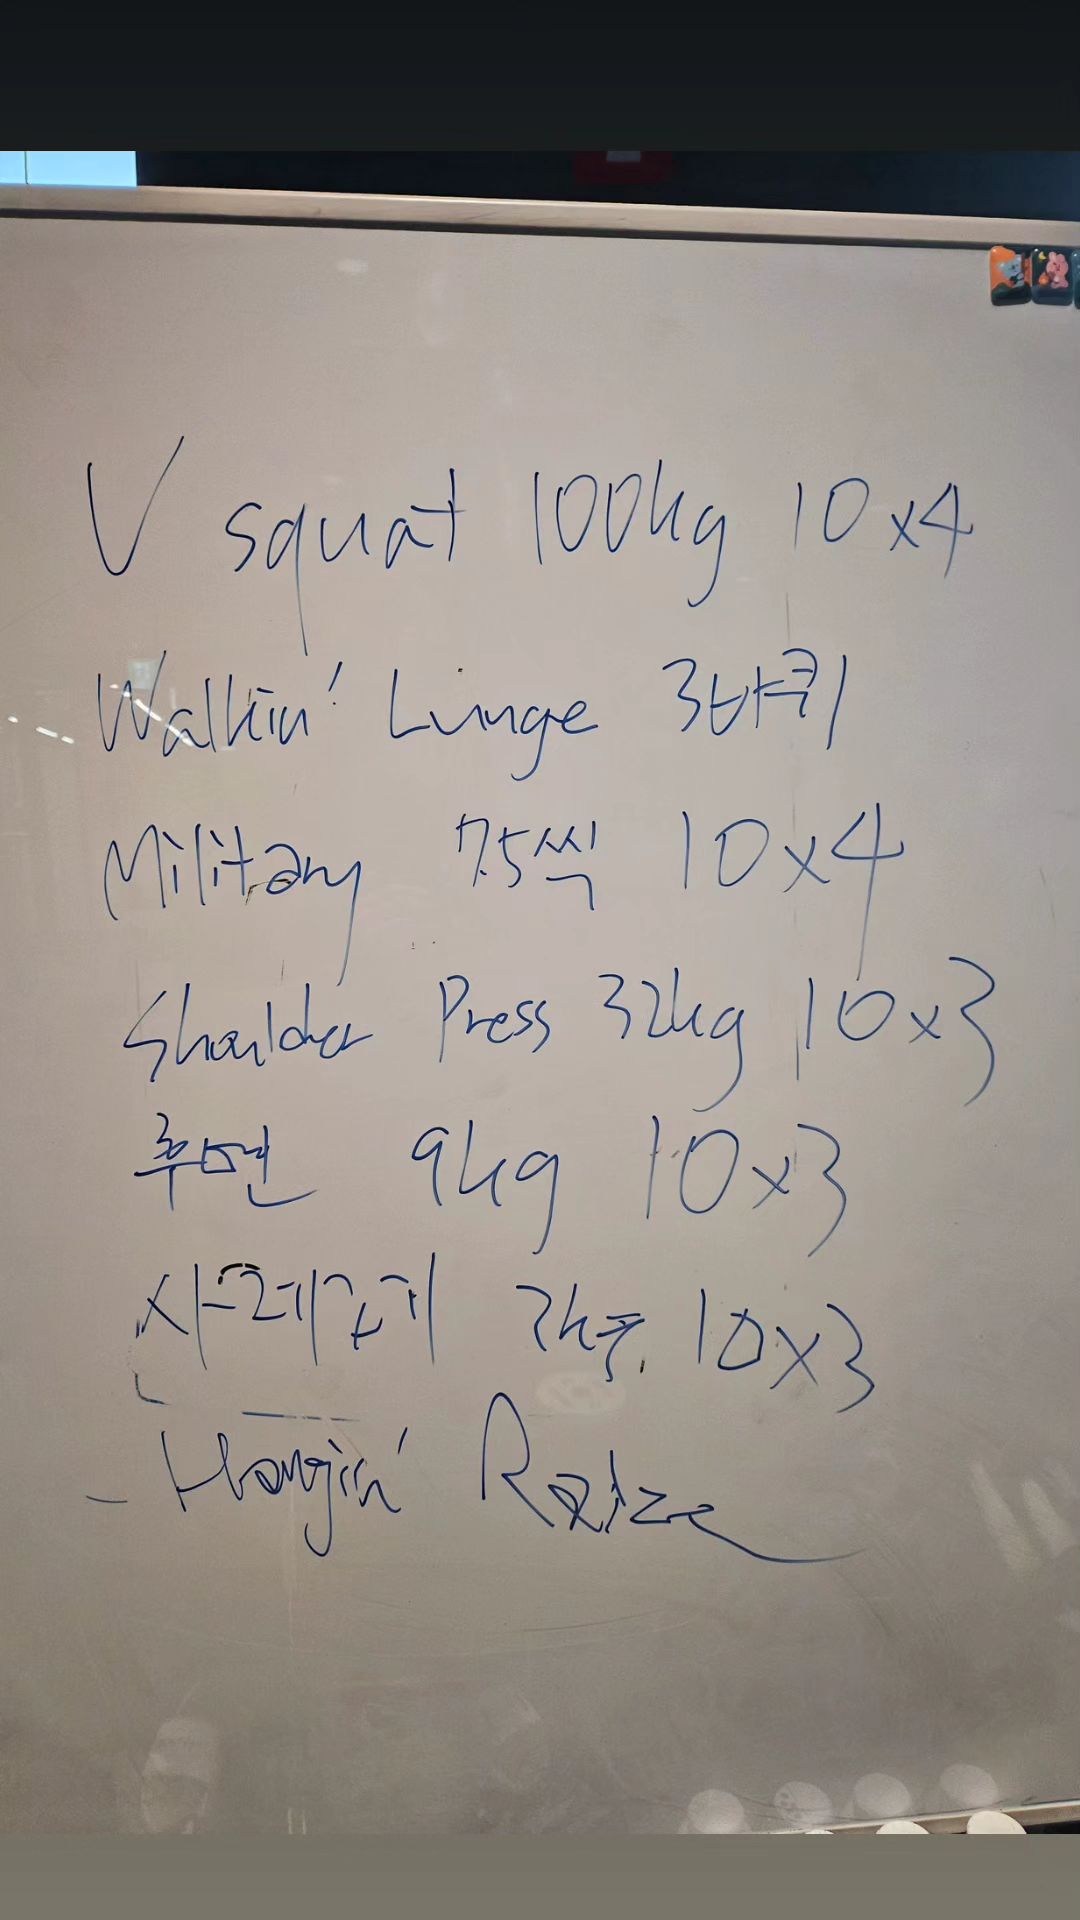 V squat 100kg 10x4
Walkin' Lunge 3바퀴
Military 7.5씩 10x4
Shoulder Press 32kg 10x3
후면 9kg 10x3
사레 10x3
Hangin' Raize